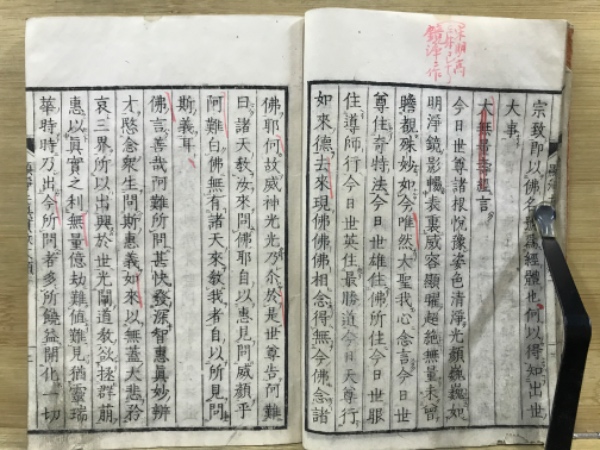 宗致即以佛名號爲經體也何以得知出世
大事
大無量壽經言
今日世尊諸根悅豫姿色清淨光顏巍巍如
明淨鏡影暢表裏威容顯曜超絕無量未曾
瞻覩殊妙如今唯然大聖我心念言今日世
尊住奇特法今日世雄住佛所住今日世眼
住導師行今日世英住最勝道今日天尊行
如來德去來現佛佛佛相念得無今佛念諸
佛耶何故威神光光乃尒於是世尊告阿難
曰諸天敎汝來問佛耶自以惠見問威顏乎
阿難白佛無有諸天來敎我者自以所見問
斯義耳
佛言善哉阿難所問甚快發深智惠眞妙辨
才愍念衆生問斯惠義如來以無蓋大悲矜
哀三界所以出興於世光闡道敎欲拯群萠
惠以眞實之利無量億劫難值難見猶靈瑞
華時時乃出今所問者多所饒益開化一切